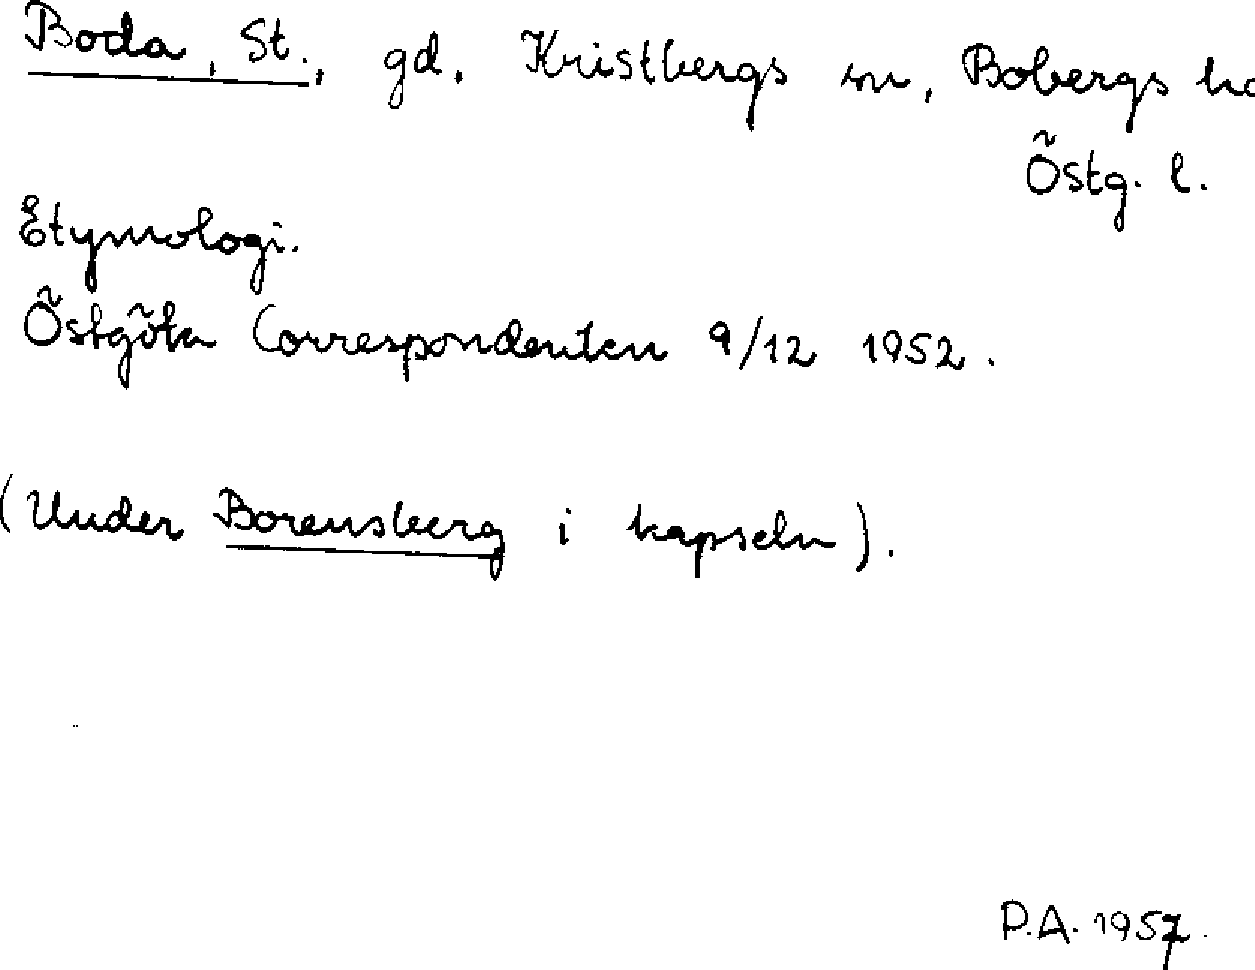 Boda, St., gd, Kristbergs sn, Bobergs hd
Östg. l.
Etymologi.
Östgöta Correspondenten 9/12 1952.
(Under Borensberg i kapseln).
P.A. 1957.